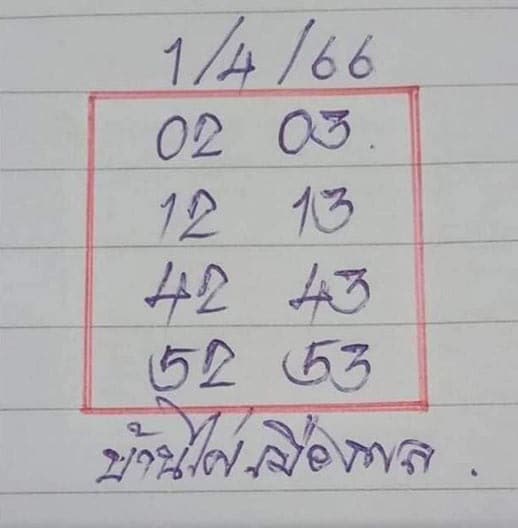 1/4/66
02 03.
12 13
42 43
52 53
บ้านไผ่เมืองพล.